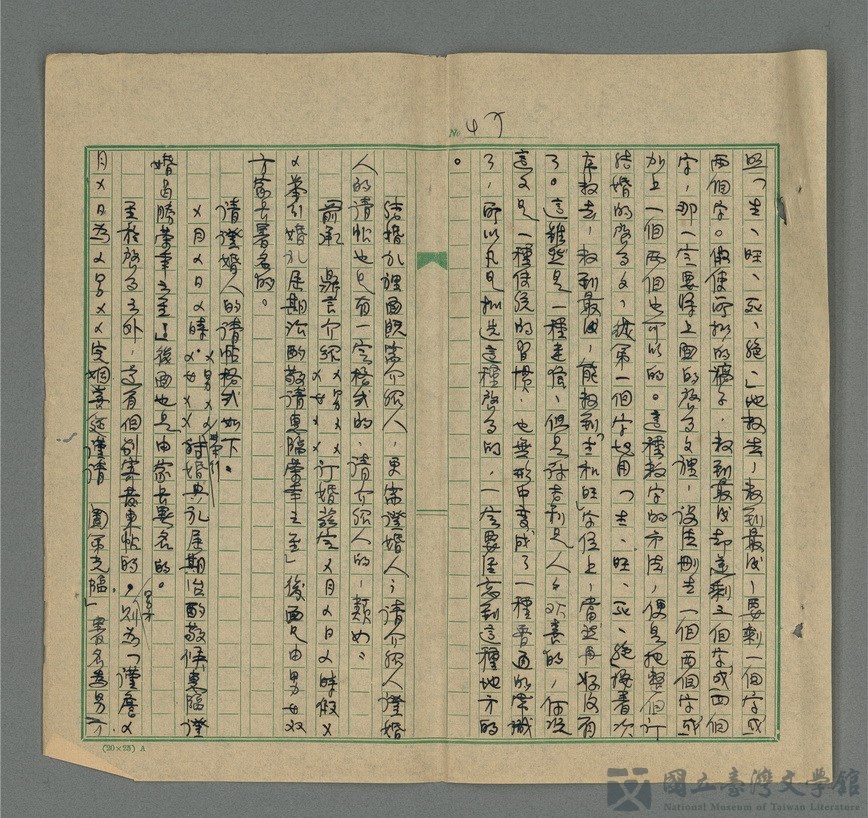 No 47
照「生、旺、死、絕」地數去,數到最後,要剩一個字或
兩個字。假使所擬的稿子,數到最後却還剩三個字或四個
字,那一定要將上面的啓事文裡,設法刪去一個兩個字或
加上一個兩個也可以的。這種數字的方法,便是把整個訂
結婚的啓事文,從第一個字起用「生、旺、死、絕」挨着次
序數去,數到最後,能數到「生和旺」字位上,當然再好沒有
了。這雖然是一種迷信,但是討吉利是人人欢喜的,何況
這又是一種傳統的習慣,也無形中變成了一種普通的常識
了,所以凡是擬具這種啓事的,一定要注意到這種地方的
。
結婚礼裡面既需介紹人,更需證婚人;請介紹人證婚
人的請帖也是有一定格式的,請介紹人的,類如:
前承 鼎言介紹 ×男×× ×女×× 訂婚茲定×月×日×時假×
×舉行婚礼屆期洽酌敬請惠臨榮幸之至」後面是由男女双
方家長署名的。
請證婚人的請帖格式如下。
×月×日×時.×男×× ×女×× 舉行結婚典礼屆期洽酌敬候惠臨證
婚曷勝榮幸之至」後面也是「由家長署名的。
至於啓事之外,還有個別寄發柬帖的,男方則為「謹詹×
月×日為×男××完姻喜筵謹請 闔第光臨」署名為男方
(20×25) A
國立臺灣文學館
National Museum of Taiwan Literature